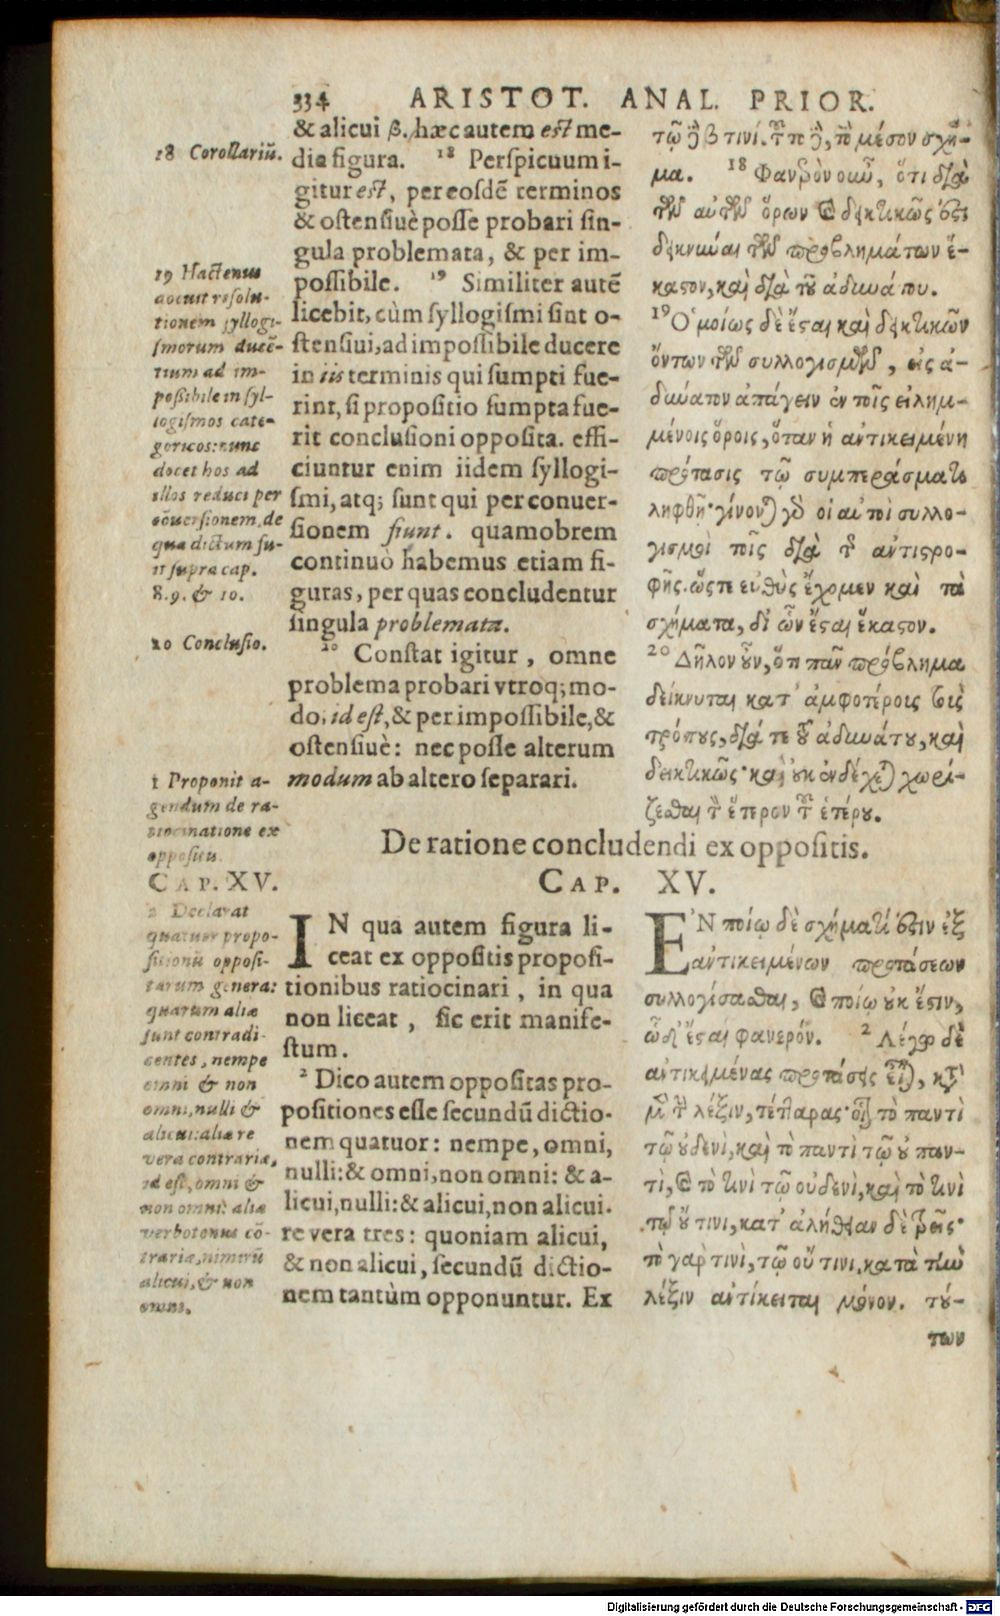 334 ARISTOT. ANAL. PRIOR.
18 Corollariũ.
19 Hactenus
docuit resolu-
tionem syllogi-
smorum ducẽ-
tium ad im-
poßibile in syl-
logismos cate-
goricos: nunc
docet hos ad
illos reduci per
cõuersionem, de
qua dictum fu-
it supra cap.
8. 9. & 10.
20 Conclusio.
1 Proponit a-
gendum de ra-
tiocinatione ex
oppositis.
CAP. XV.
2 Declarat
quatuor propo-
sitionũ opposi-
tarum genera:
quarum aliæ
sunt contradi-
centes, nempe
omni & non
omni, nulli &
alicui: aliæ re
vera contrariæ,
id est, omni &
non omni: aliæ
verbotenus cõ-
trariæ, nimirũ
alicui, & non
omni.
& alicui β. hæc autem est me-
dia figura. 18 Perſpicuum i-
gitur est, per eoſdẽ terminos
& oſtenſiuè poſſe probari ſin-
gula problemata, & per im-
poſſibile. 19 Similiter autẽ
licebit, cùm ſyllogiſmi ſint o-
ſtenſiui, ad impoſſibile ducere
in iis terminis qui ſumpti fue-
rint, ſi propoſitio ſumpta fue-
rit concluſioni oppoſita. effi-
ciuntur enim iidem ſyllogi-
ſmi, atq; ſunt qui per conuer-
ſionem fiunt. quamobrem
continuò habemus etiam fi-
guras, per quas concludentur
ſingula problemata.
20 Conſtat igitur, omne
problema probari vtroq; mo-
do, id eſt, & per impoſſibile, &
oſtenſiuè: nec poſſe alterum
modum ab altero ſeparari.
τῷ ȣ̓ β τινί. τȣ͂το ȣ̓, τὸ μέσον σχῆ-
μα. 18 Φανερὸν οὖν, ὅτι διὰ
τῶν αὐτῶν ὅρων καὶ δεικτικῶς ἔστι
δεικνύναι τῶν προβλημάτων ἕ-
καστον, καὶ διὰ τοῦ ἀδυνάτου.
19 Ὁμοίως δὲ ἔσται καὶ δεικτικῶν
ὄντων τῶν συλλογισμῶν, εἰς ἀ-
δύνατον ἀπάγειν ἐν τοῖς εἰλημ-
μένοις ὅροις, ὅταν ἡ ἀντικειμένη
πρότασις τῷ συμπεράσματι
ληφθῇ· γίνονται γὰρ οἱ αὐτοὶ συλλο-
γισμοὶ τοῖς διὰ τῆς ἀντιστρο-
φῆς. ὥστε εὐθὺς ἔχομεν καὶ τὰ
σχήματα, δι' ὧν ἔσται ἕκαστον.
20 Δῆλον οὖν, ὅτι πᾶν πρόβλημα
δείκνυται κατ' ἀμφοτέρους τοὺς
τρόπους, διά τε τοῦ ἀδυνάτου, καὶ
δεικτικῶς· καὶ οὐκ ἐνδέχεται χωρί-
ζεσθαι τὸν ἕτερον τοῦ ἑτέρου.
De ratione concludendi ex oppoſitis.
CAP. XV.
IN qua autem figura li-
ceat ex oppoſitis propoſi-
tionibus ratiocinari, in qua
non liceat, ſic erit manife-
ſtum.
2 Dico autem oppoſitas pro-
poſitiones eſſe ſecundũ dictio-
nem quatuor: nempe, omni,
nulli: & omni, non omni: & a-
licui, nulli: & alicui, non alicui.
re vera tres: quoniam alicui,
& non alicui, ſecundũ dictio-
nem tantùm opponuntur. Ex
ἘΝ ποίῳ δὲ σχήματί ἐστιν ἐξ
ἀντικειμένων προτάσεων
συλλογίσασθαι, καὶ ποίῳ οὐκ ἔστιν,
ὧδ' ἔσται φανερόν. 2 Λέγω δὲ
ἀντικειμένας προτάσεις εἶναι, κατὰ
μὲν τὴν λέξιν, τέτταρας· οἷον τὸ παντὶ
τῷ οὐδενὶ, καὶ τὸ παντὶ τῷ οὐ παν-
τὶ, καὶ τὸ τινὶ τῷ οὐδενὶ, καὶ τὸ τινὶ
τῷ οὔ τινι, κατ' ἀλήθειαν δὲ τρεῖς·
τὸ γὰρ τινὶ, τῷ οὔ τινι, κατὰ τὴν
λέξιν ἀντίκειται μόνον. τού-
των
Digitalisierung gefördert durch die Deutsche Forschungsgemeinschaft - DFG